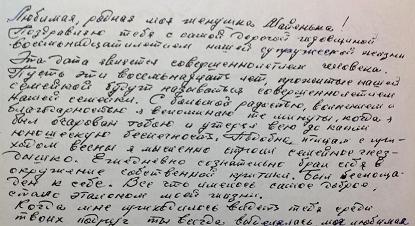 Любимая, родная моя женушка Майенька!
Поздравляю тебя с самой дорогой годовщиной
восемнадцатилетием нашей супружеской жизни
Эта дата является совершеннолетием человека.
Пусть эти восемнадцать лет, прожитые нашей
семьёй будут называться совершеннолетием
нашей семейки. С большой радостью, волнением и
благодарностью я вспоминаю те минуты, когда я
был очарован тобою и утерял всю до капли
юношескую беспечность. Подобно птицам с при-
ходом весны я мысленно строил семейное гнёз-
дышко. Ежедневно сознательно брал себя в
окружение собственной критики. Был беспоща-
ден к себе. Все что имелось самое доброе,
стало эталоном моей жизни.
Когда мне приходилось видеть тебя среди
твоих подруг ты всегда выделялась моя любимая